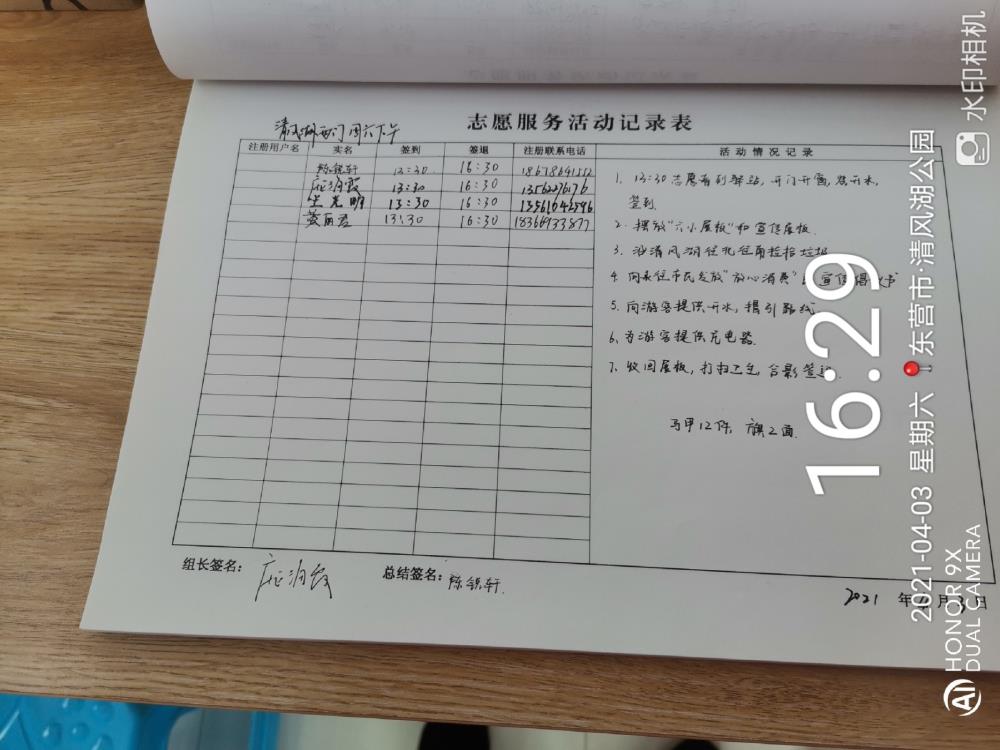 志愿服务活动记录表
清风湖西门 周六下午
注册用户名 实名 签到 签退 注册联系电话 活动情况记录
13:30 16:30
13:30 16:30
13:30 16:30
13:30 16:30 18366933877
1. 13:30 志愿者到驿站,开门开窗,烧开水,
签到.
2. 摆放"六小展板"和宣传展板.
3. 沿清风湖往北往南捡拾垃圾
4 向来往市民发放"放心消费" 宣传倡议书
5. 向游客提供开水,指引路线
6. 为游客提供充电器.
7. 收回展板,打扫卫生,合影签退.
马甲12件, 旗2面.
组长签名:
总结签名: 陈锦轩.
2021 年 4 月 3 日
水印相机
16:29
2021-04-03 星期六 东营市·清风湖公园
HONOR 9X
AI DUAL CAMERA